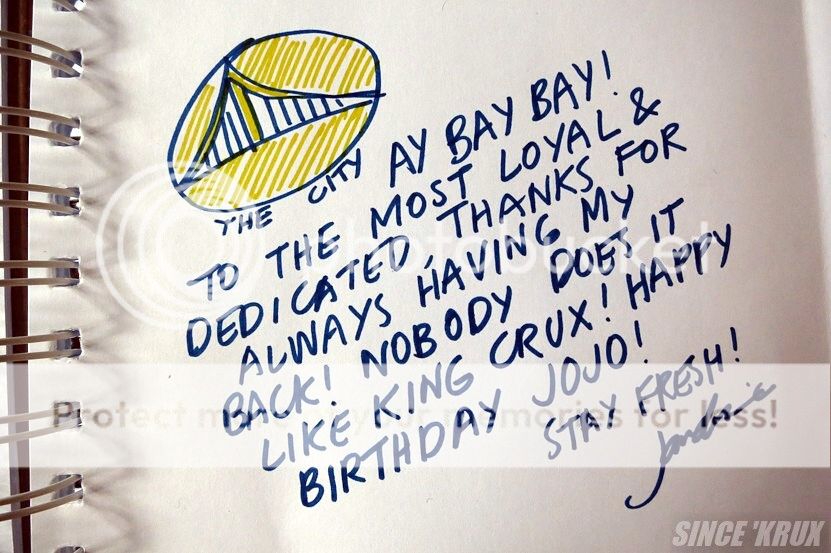 THE CITY
AY BAY BAY!
TO THE MOST LOYAL &
DEDICATED, THANKS FOR
ALWAYS HAVING MY
BACK! NOBODY DOES IT
LIKE KING CRUX! HAPPY
BIRTHDAY JOJO!
STAY FRESH!
photobucket
Protect more of your memories for less!
SINCE 'KRUX